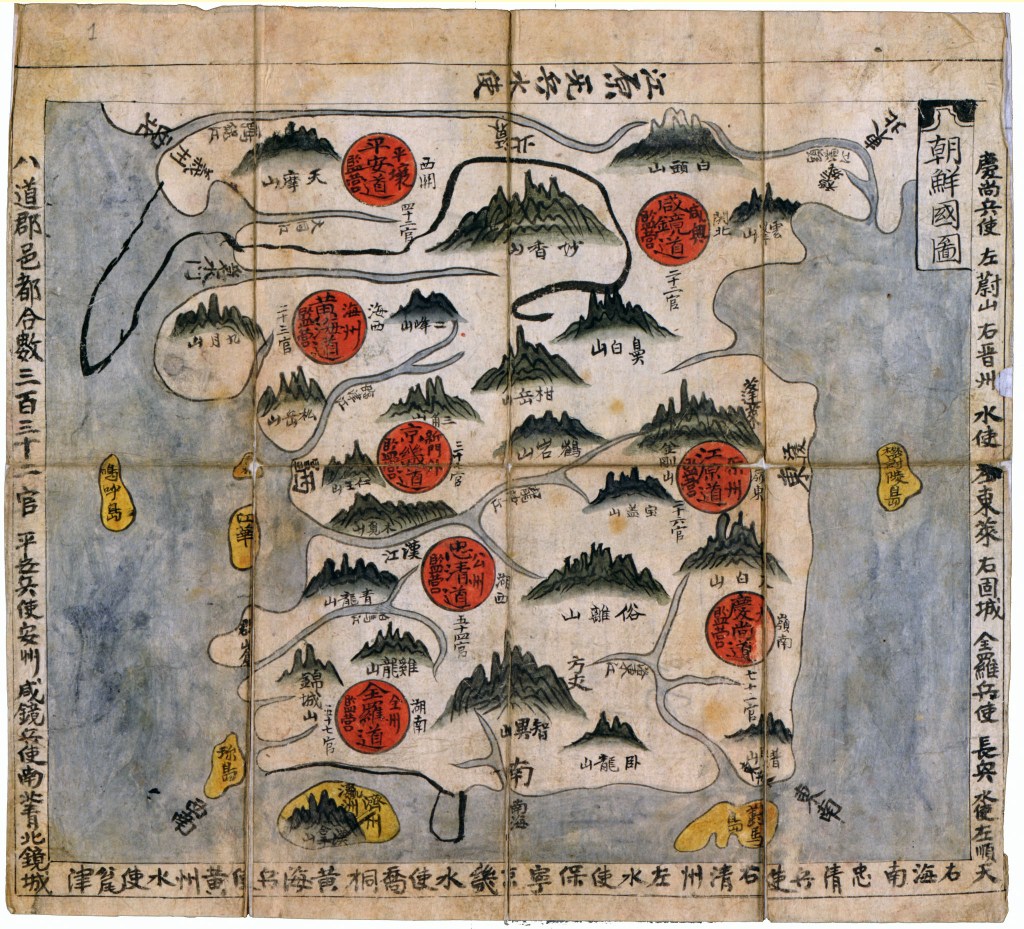 1
江原无兵水使
朝鮮國圖
慶尚兵使 左蔚山 右晋州 水使 左東萊 右固城 全羅兵使 長兵 水使左順天
右海南忠清兵使右清州左水使保寧京畿水使喬桐黄海兵使黄州水使瓮津
八道郡邑都合數三百三十一官 平安兵使安州 咸鏡兵使南靑北鏡城
北
東北
義州
天摩山
平壤
平安道
監營
西關
四十二官
白頭山
妙香山
咸興
咸鏡道
監營
關北
二十二官
雲山
九月山
海州
黄海道
監營
海西
二十三官
二峰山
鼻白山
松岳山
三角山
柑岳山
鶴岩山
新門外
京畿道
監營
仁王山
木覓山
漢江
金剛山
蓬萊
原州
江原道
監營
關東
二十六官
東
宝盖山
江華
公州
忠清道
監營
湖西
五十四官
青龍山
鷄龍山
俗離山
太白山
慶尚道
監營
嶺南
七十一官
錦城山
全州
全羅道
監營
湖南
五十七官
智異山
方丈
卧龍山
南
南海
東南
濟州
瀛州
對馬島
珎島